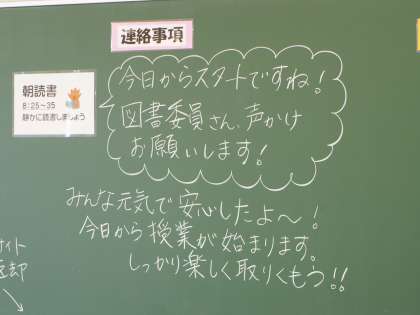 連絡事項
朝読書
8:25~35
静かに読書しましょう
今日からスタートですね!
図書委員さん、声かけ
お願いします!
みんな元気で安心したよ〜!
今日から授業が始まります。
しっかり楽しく取りくもう!!
サイト
返却